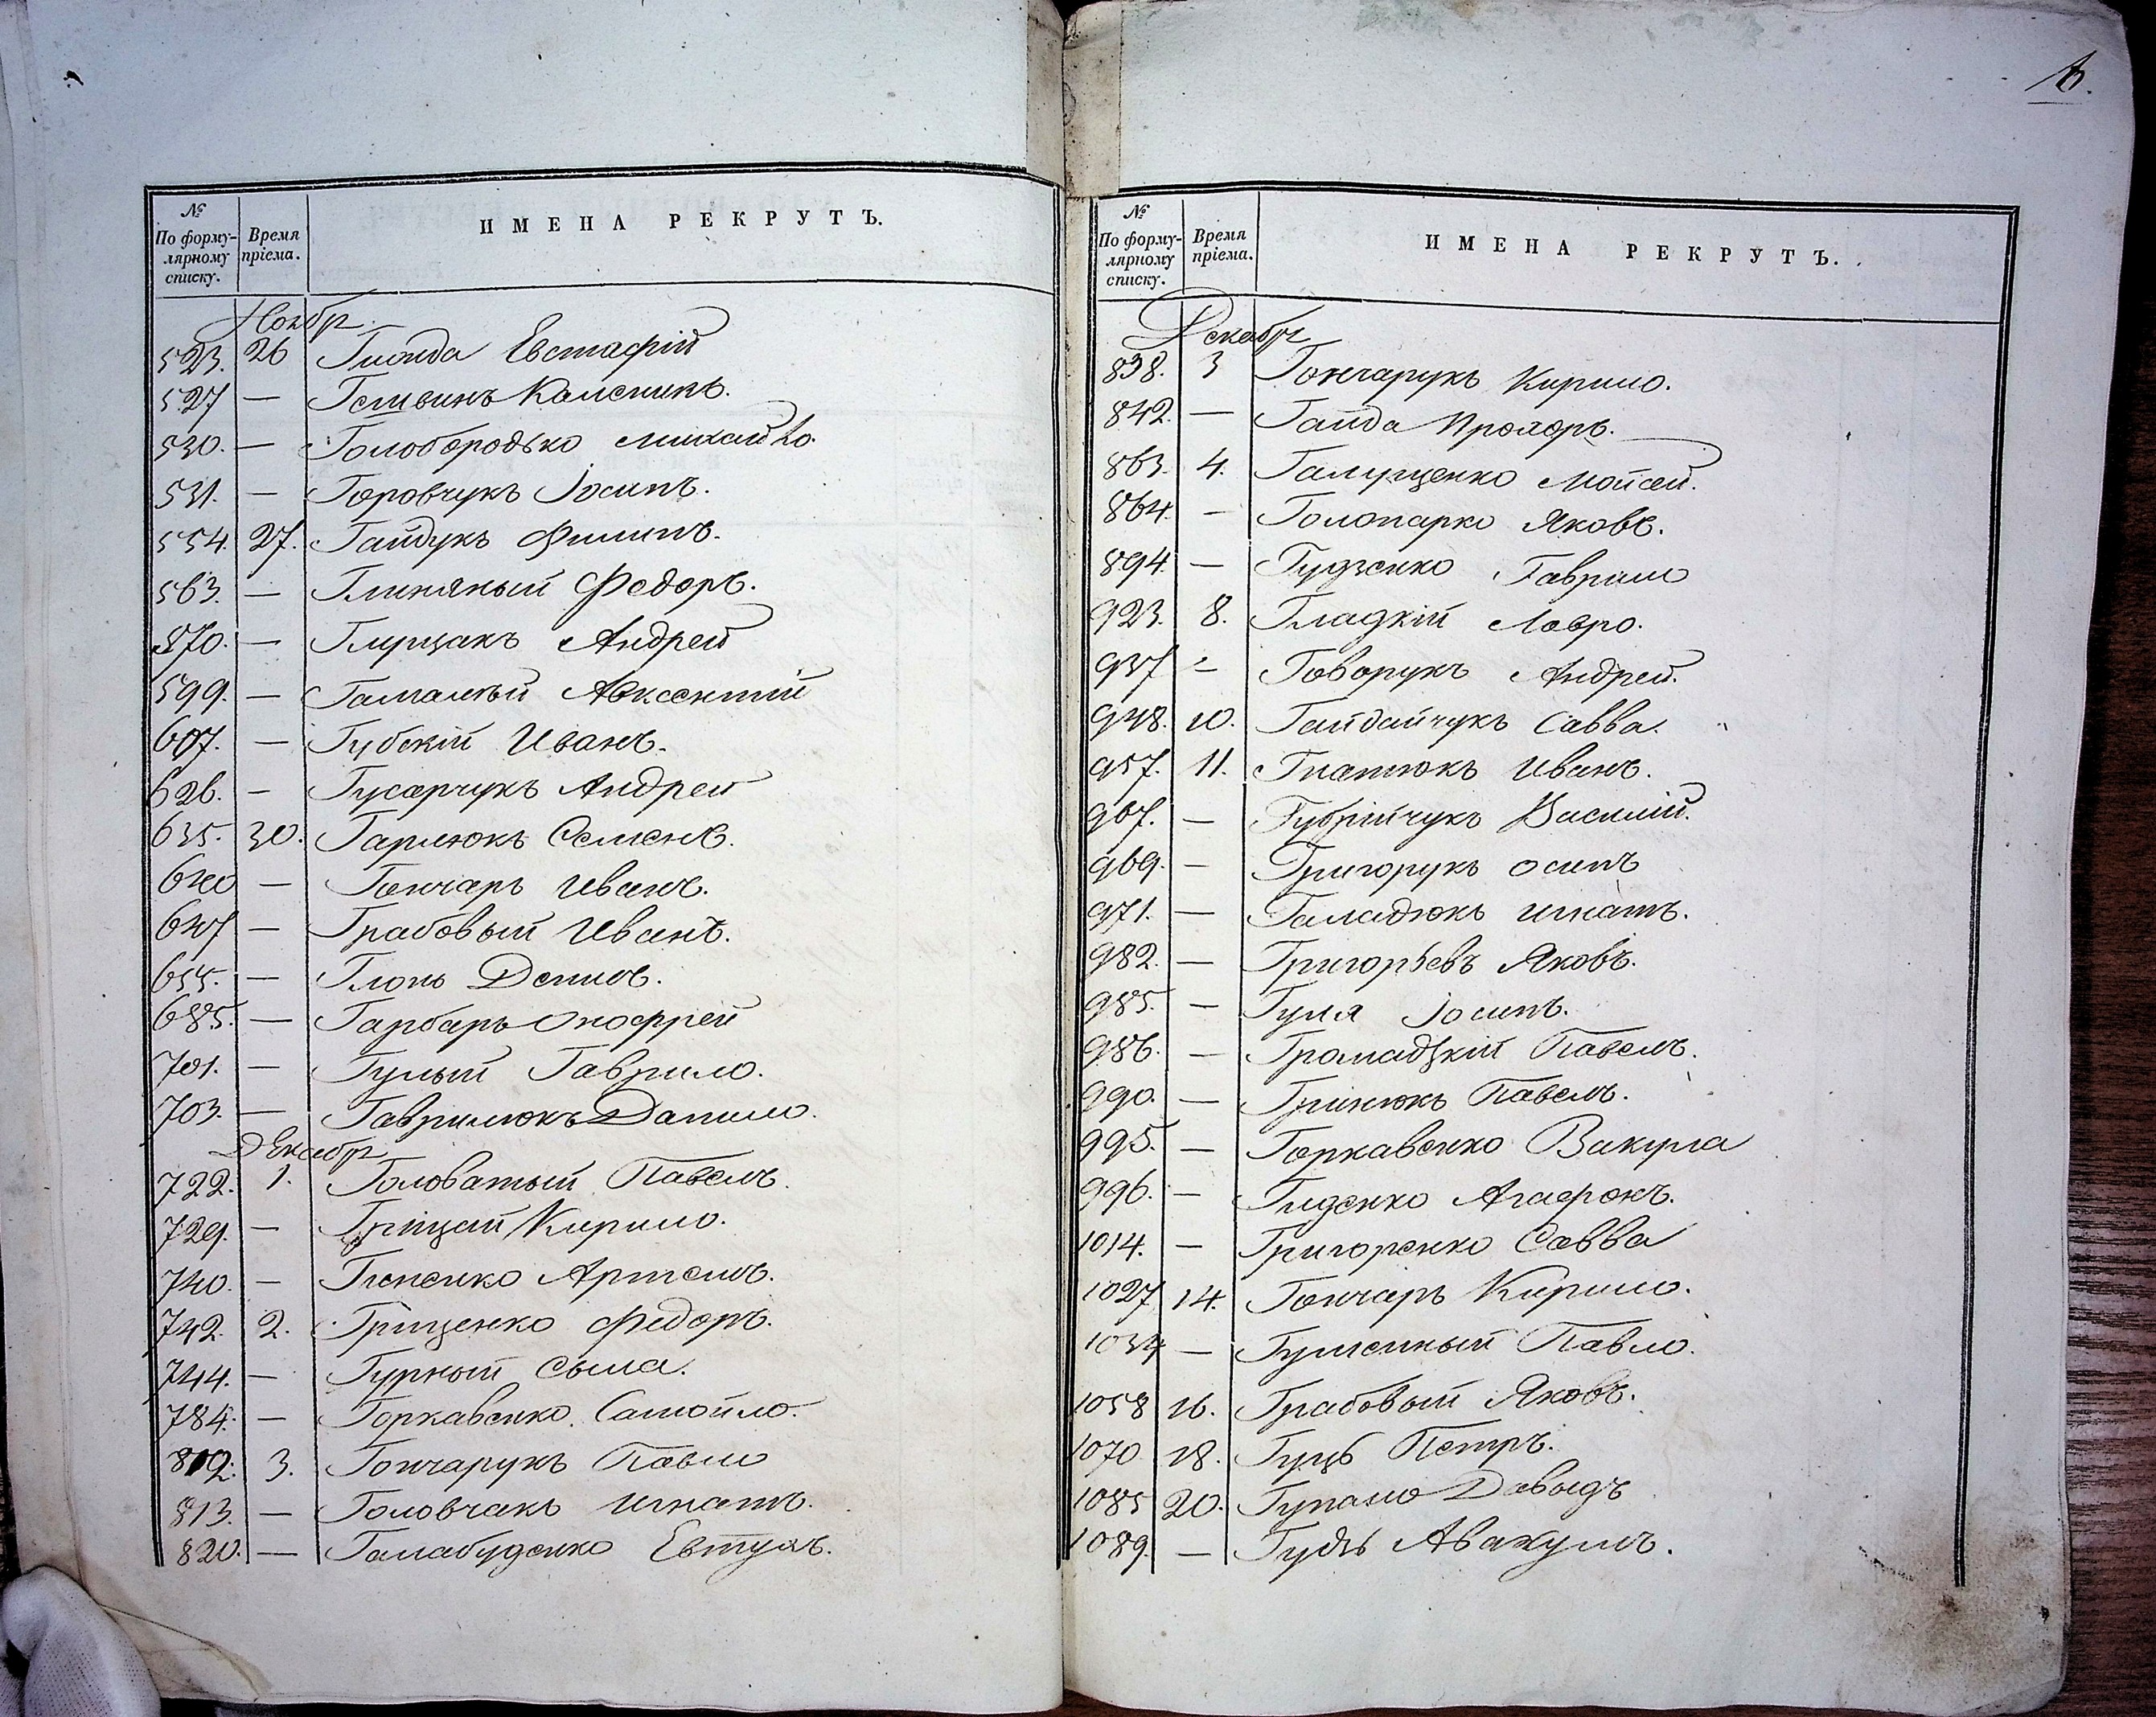 №
По форму-
лярному
списку.
Время
пріема.
ИМЕНА РЕКРУТЪ.
Ноябр.
523. 26 Евстафій
527 —
530. — Голобородько Михайло.
531. — Горовчукъ Іосипъ.
554. 27. Гайдукъ Филипъ.
563. — Глиняный Федоръ.
570. — Глущакъ Андрей
599. — Авксентий
607. — Губскій Иванъ.
626. — Гусарчукъ Андрей
635. 30. Гарлюкъ Семенъ.
640 — Гончаръ Иванъ.
647 — Грабовый Иванъ.
655. — Данило.
685. — Гарбаръ Онофрей
701. — Гулый Гаврило.
703. — Гаврилюкъ Данило.
Декабр
722. 1. Головатый Павелъ.
729. — Грицай Кирило.
740. — Артемъ.
742. 2. Грищенко Федоръ.
744. — Гурный Сыла.
784. — Горкавенко Самойло.
812. 3. Гончарукъ Павло
813. — Головчакъ Игнатъ.
820. — Галабуденко Евтухъ.
6.
№
По форму-
лярному
списку.
Время
пріема.
ИМЕНА РЕКРУТЪ.
Декабр
838. 3 Гончарукъ Кирило.
842. — Гайда Прохоръ.
863. 4. Галущенко Мойсей.
864. — Голопарко Яковъ.
894. — Гудзенко Гаврило
923. 8. Гладкій Лавро.
937 — Говорукъ Андрей.
948. 10. Гайдайчукъ Савва.
957. 11. Гнатюкъ Иванъ.
967. — Василій.
969. — Григорукъ Осипъ
971. — Галадюкъ Игнатъ.
982. — Григорьевъ Яковъ.
985. — Гуля Іосипъ.
986. — Громадзкій Павелъ.
990. — Гринюкъ Павелъ.
995. — Горкавенко Вакула
996. — Агафонъ.
1014. — Григоренко Савва
1027 14. Гончаръ Кирило.
1034 — Гуменный Павло.
1058 16. Грабовый Яковъ.
1070 18. Гуць Петръ.
1085 20. Гупало Давыдъ
1089. — Гудзь Авакумъ.